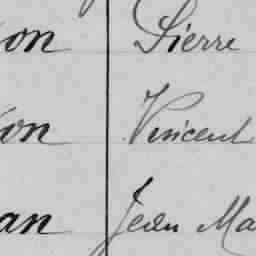 on Pierre
on Vincent
an Jean Ma